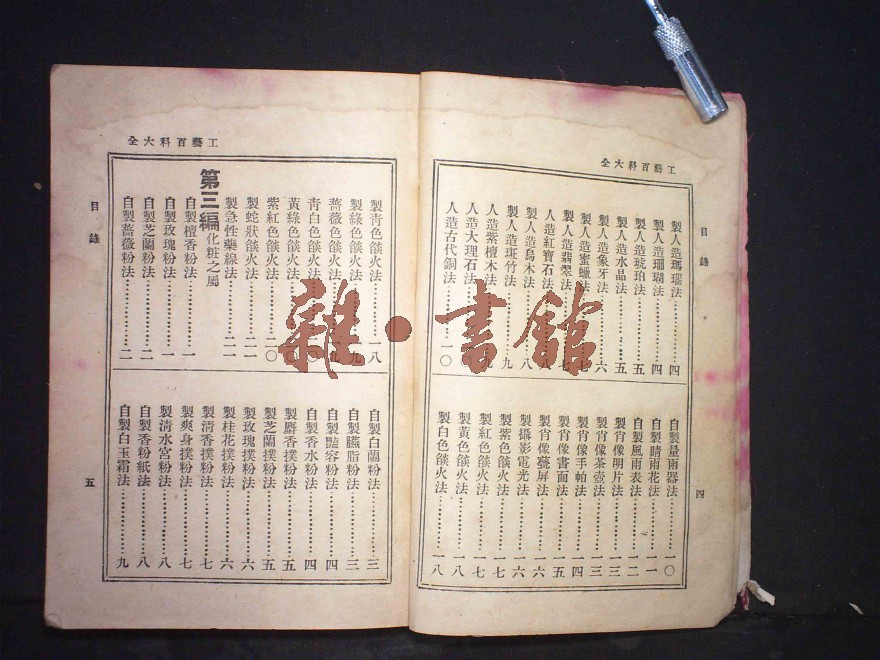 工藝百科大全
目錄
製人造瑪瑙法 四
製人造珊瑚法 四
製人造琥珀法 五
製人造水晶法 五
製人造象牙法 六
製人造蜜蠟法
製人造翡翠法 七
人造紅寶石法 八
製人造烏木法 八
製人造斑竹法 九
人造紫檀木法
人造大理石法
人造古代銅法 一〇
自製量雨器法 一〇
自製晴雨花法 一一
自製風雨表法 一二
製肖像明片法 一三
製肖像茶壺法 一三
製肖像手帕法 一四
製肖像書面法 一五
製肖像甆屏法 一六
製攝影電光法 一六
製紫色燄火法 一七
製紅色燄火法 一七
製黃色燄火法 一八
製白色燄火法 一八
四
工藝百科大全
目錄
製青色燄火法 一八
製綠色燄火法 一九
薔薇色燄火法
青白色燄火法
黃綠色燄火法
紫紅色燄火法 二〇
製蛇狀燄火法 二一
製急性藥線法 二一
第三編 化粧之屬
自製檀香粉法 一
自製玫瑰粉法 一
自製芝蘭粉法 二
自製薔薇粉法 二
自製白蘭粉法 三
製臙脂粉法 三
製豔容粉法 四
自製香水粉法 四
製麝香撲粉法 五
製芝蘭撲粉法 五
製玫瑰撲粉法 六
製桂花撲粉法 六
製清香撲粉法 七
製爽身撲粉法 七
製清水宮粉法 八
自製香粉紙法 八
自製白玉霜法 九
五
雜·書館